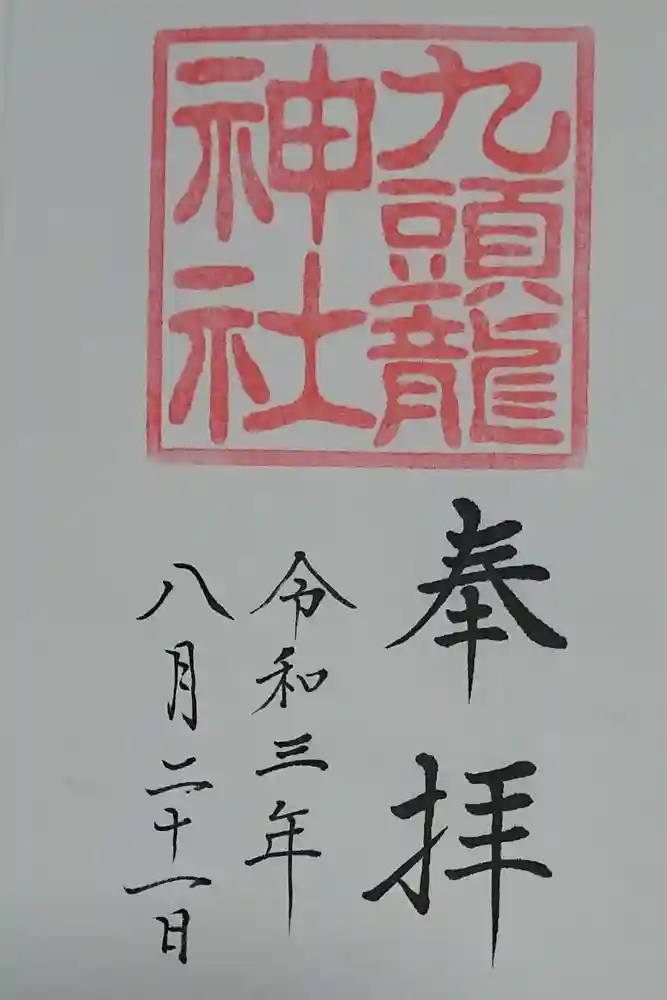 九頭龍
神社
奉拝
令和三年
八月二十一日